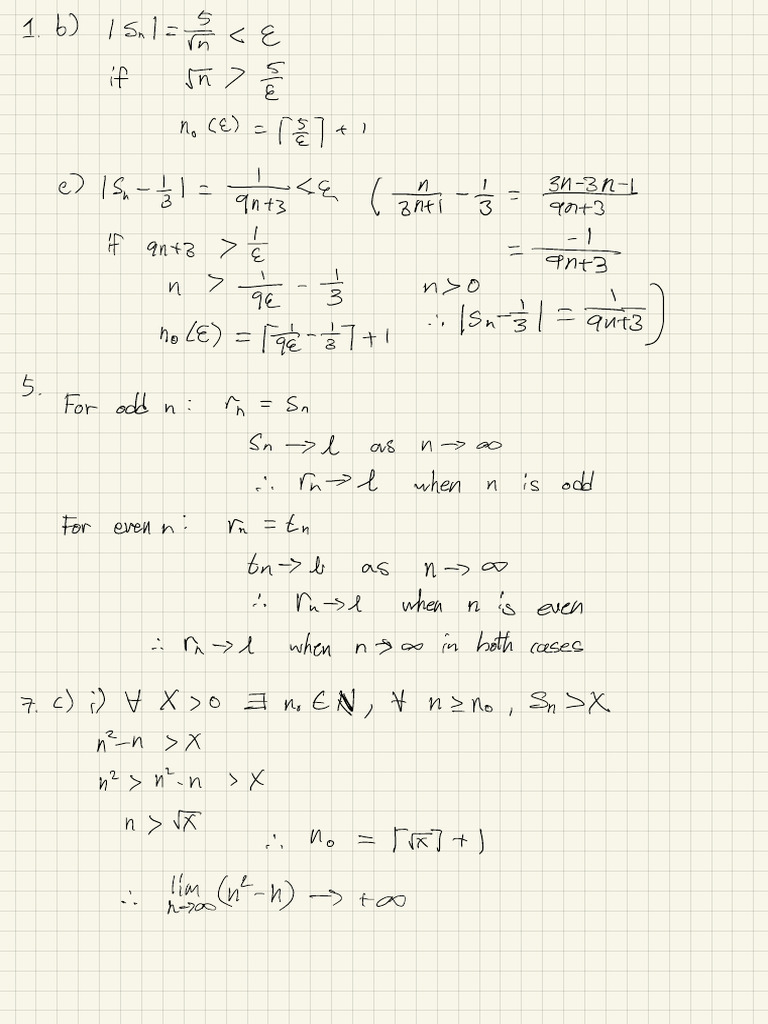 1. b) |Sn| = 5/√n < ε
if √n > 5/ε
n₀(ε) = ⌈5/ε⌉ + 1
e) |Sn - 1/3| = 1/(9n+3) < ε ( n/(3n+1) - 1/3 = (3n-3n-1)/(9n+3)
if 9n+3 > 1/ε = -1/(9n+3)
n > 1/(9ε) - 1/3 n>0
n₀(ε) = ⌈1/(9ε) - 1/3⌉ + 1 ∴ |Sn - 1/3| = 1/(9n+3) )
5.
For odd n: rn = Sn
Sn → l as n → ∞
∴ rn → l when n is odd
For even n: rn = tn
tn → l as n → ∞
∴ rn → l when n is even
∴ rn → l when n → ∞ in both cases
7. c) i) ∀ X > 0 ∃ n₀ ∈ ℕ, ∀ n ≥ n₀, Sn > X
n² - n > X
n² > n² - n > X
n > √x
∴ n₀ = ⌈√x⌉ + 1
∴ lim n→∞ (n² - n) → +∞